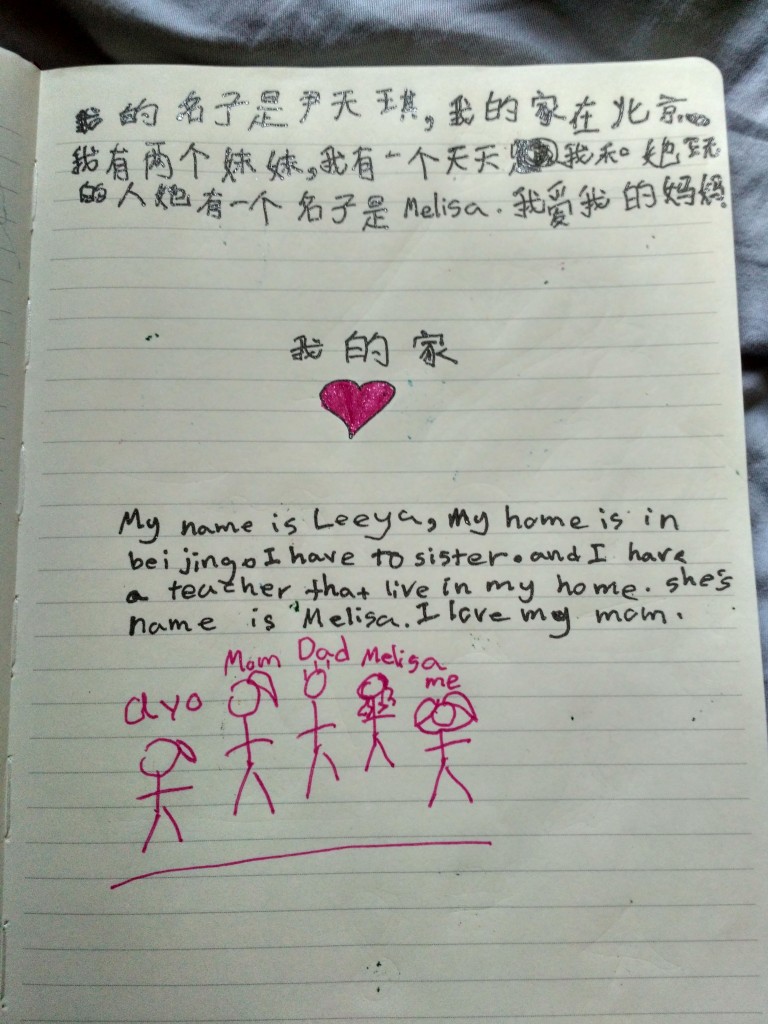 我的名子是尹天琪,我的家在北京.
我有两个妹妹,我有一个天天 我和她玩
的人她有一个名子是Melisa.我爱我的妈妈.
我的家
My name is Leeya, My home is in
beijing. I have to sister. and I have
a teacher that live in my home. she's
name is Melisa. I love my mom.
Mom Dad Melisa
ayo me